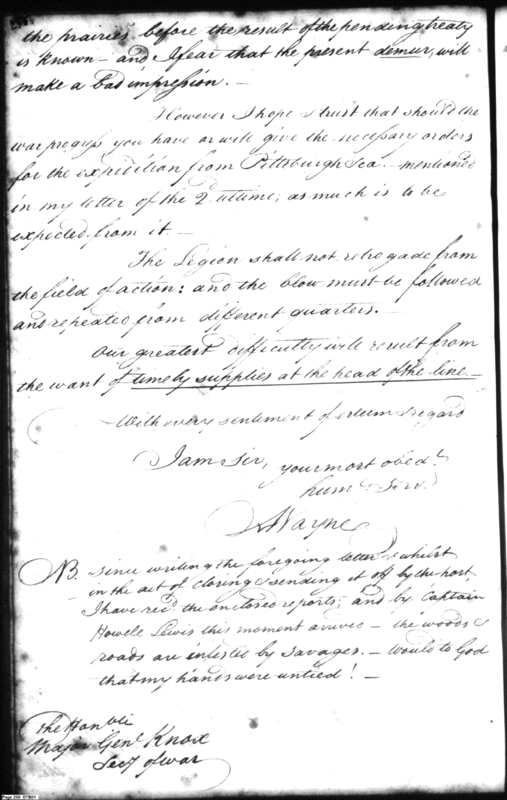 the prairies before the result of the pending treaty
is known – and I fear that the present demur, will
make a bad impression. –
However I hope & trust that should the
war progress you have or will give the necessary orders
for the expedition from Pittsburgh &ca. – mentioned
in my letter of the 2d ultimo; as much is to be
expected from it –
The Legion shall not retrogade from
the field of action: and the blow must be followed
and repeated from different quarters. –
Our greatest difficulty will result from
the want of timely supplies at the head of the line –
With every sentiment of esteem & regard
I am Sir, your most obedt.
humb Serv.
A Wayne
NB. since writing the foregoing letter & whilst
in the act of closing & sending it off by the post,
I have recd. the enclosed reports; and by Captain
Howell Lewis this moment arived – the woods &
roads are infested by Savages. – Would to God
that my hands were untied! –
The Honble
Major Genl. Knox
Secy of war